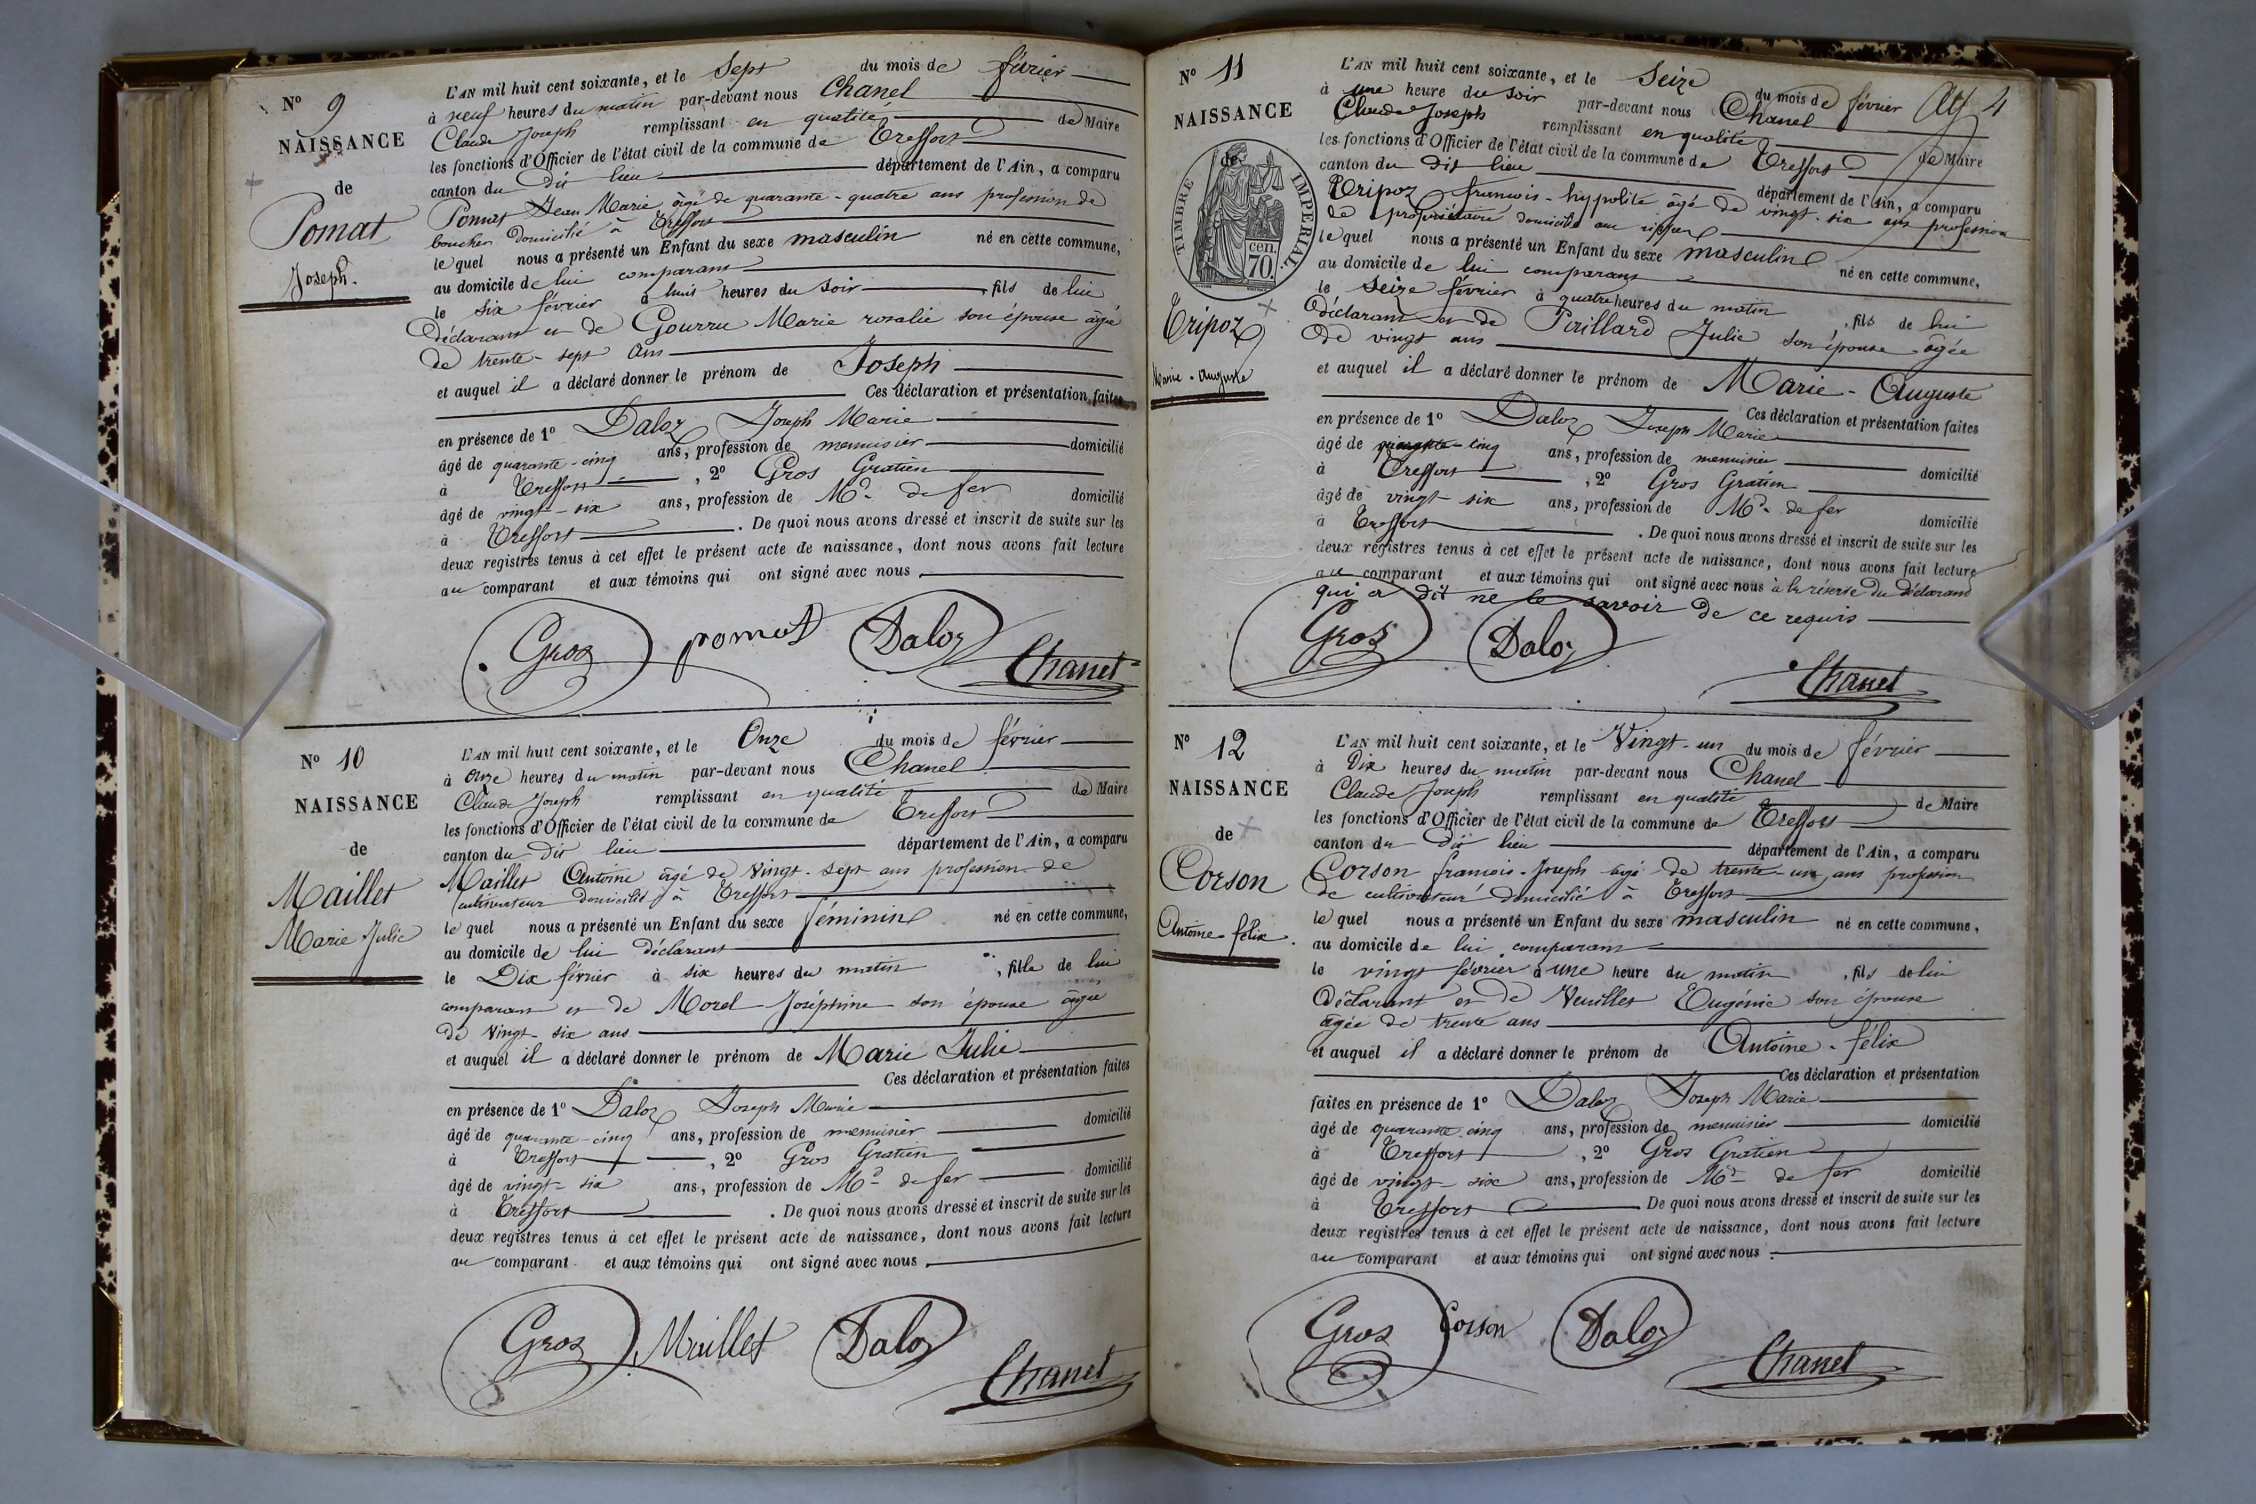 N° 9
NAISSANCE
de
Pomat
Joseph.
L'AN mil huit cent soixante, et le Sept du mois de février
à neuf heures du matin par-devant nous Chanel
Claude Joseph remplissant en qualité de Maire
les fonctions d'Officier de l'état civil de la commune de Treffort
canton du dit lieu département de l'Ain, a comparu
Pomat Jean Marie âgé de quarante-quatre ans profession de
boucher domicilié à Treffort
lequel nous a présenté un Enfant du sexe masculin né en cette commune,
au domicile de lui comparant
le six février à huit heures du soir, fils de lui
déclarant et de Gourru Marie rosalie son épouse âgée
de trente-sept ans
et auquel il a déclaré donner le prénom de Joseph
Ces déclaration et présentation faites
en présence de 1° Daloz Joseph Marie
âgé de quarante-cinq ans, profession de menuisier domicilié
à Treffort, 2° Gros Gratien
âgé de vingt-six ans, profession de Md de fer domicilié
à Treffort. De quoi nous avons dressé et inscrit de suite sur les
deux registres tenus à cet effet le présent acte de naissance, dont nous avons fait lecture
au comparant et aux témoins qui ont signé avec nous.
Gros pomat Daloz
Chanel
N° 10
NAISSANCE
de
Maillet
Marie Julie
L'AN mil huit cent soixante, et le Onze du mois de février
à Onze heures du matin par-devant nous Chanel
Claude Joseph remplissant en qualité de Maire
les fonctions d'Officier de l'état civil de la commune de Treffort
canton du dit lieu département de l'Ain, a comparu
Maillet Antoine âgé de Vingt-sept ans profession de
cultivateur domicilié à Treffort
lequel nous a présenté un Enfant du sexe féminin né en cette commune,
au domicile de lui déclarant
le Dix février à six heures du matin, fille de lui
comparant et de Morel Joséphine son épouse âgée
de Vingt-six ans
et auquel il a déclaré donner le prénom de Marie Julie
Ces déclaration et présentation faites
en présence de 1° Daloz Joseph Marie
âgé de quarante-cinq ans, profession de menuisier domicilié
à Treffort, 2° Gros Gratien
âgé de vingt-six ans, profession de Md de fer domicilié
à Treffort. De quoi nous avons dressé et inscrit de suite sur les
deux registres tenus à cet effet le présent acte de naissance, dont nous avons fait lecture
au comparant et aux témoins qui ont signé avec nous.
Gros Maillet Daloz
Chanel
N° 11
NAISSANCE
de
TIMBRE IMPERIAL.
cen.
70.
Tripoz
Marie-Auguste
4
L'AN mil huit cent soixante, et le Seize du mois de février
à une heure du soir par-devant nous Chanel
Claude Joseph remplissant en qualité de Maire
les fonctions d'Officier de l'état civil de la commune de Treffort
canton du dit lieu département de l'Ain, a comparu
Tripoz francois-hypolite âgé de vingt-six ans profession
de propriétaire domicilié au
lequel nous a présenté un Enfant du sexe masculin né en cette commune,
au domicile de lui comparant
le Seize février à quatre heures du matin, fils de lui
déclarant et de Paillard Julie son épouse âgée
de vingt ans
et auquel il a déclaré donner le prénom de Marie-Auguste
Ces déclaration et présentation faites
en présence de 1° Daloz Joseph Marie
âgé de quarante-cinq ans, profession de menuisier domicilié
à Treffort, 2° Gros Gratien
âgé de vingt-six ans, profession de Md de fer domicilié
à Treffort. De quoi nous avons dressé et inscrit de suite sur les
deux registres tenus à cet effet le présent acte de naissance, dont nous avons fait lecture
au comparant et aux témoins qui ont signé avec nous à la réserve du déclarant
qui a dit ne le savoir de ce requis
Gros Daloz
Chanel
N° 12
NAISSANCE
de
Corson
Antoine-félix.
L'AN mil huit cent soixante, et le Vingt-un du mois de février
à Dix heures du matin par-devant nous Chanel
Claude Joseph remplissant en qualité de Maire
les fonctions d'Officier de l'état civil de la commune de Treffort
canton du dit lieu département de l'Ain, a comparu
Corson francois-Joseph âgé de trente-un ans profession
de cultivateur domicilié à Treffort
lequel nous a présenté un Enfant du sexe masculin né en cette commune,
au domicile de lui comparant
le vingt février à une heure du matin, fils de lui
déclarant et de Veuillet Eugénie son épouse
âgée de trente ans
et auquel il a déclaré donner le prénom de Antoine-félix
Ces déclaration et présentation
faites en présence de 1° Daloz Joseph Marie
âgé de quarante cinq ans, profession de menuisier domicilié
à Treffort, 2° Gros Gratien
âgé de vingt-six ans, profession de Md de fer domicilié
à Treffort. De quoi nous avons dressé et inscrit de suite sur les
deux registres tenus à cet effet le présent acte de naissance, dont nous avons fait lecture
au comparant et aux témoins qui ont signé avec nous.
Gros Corson Daloz
Chanel